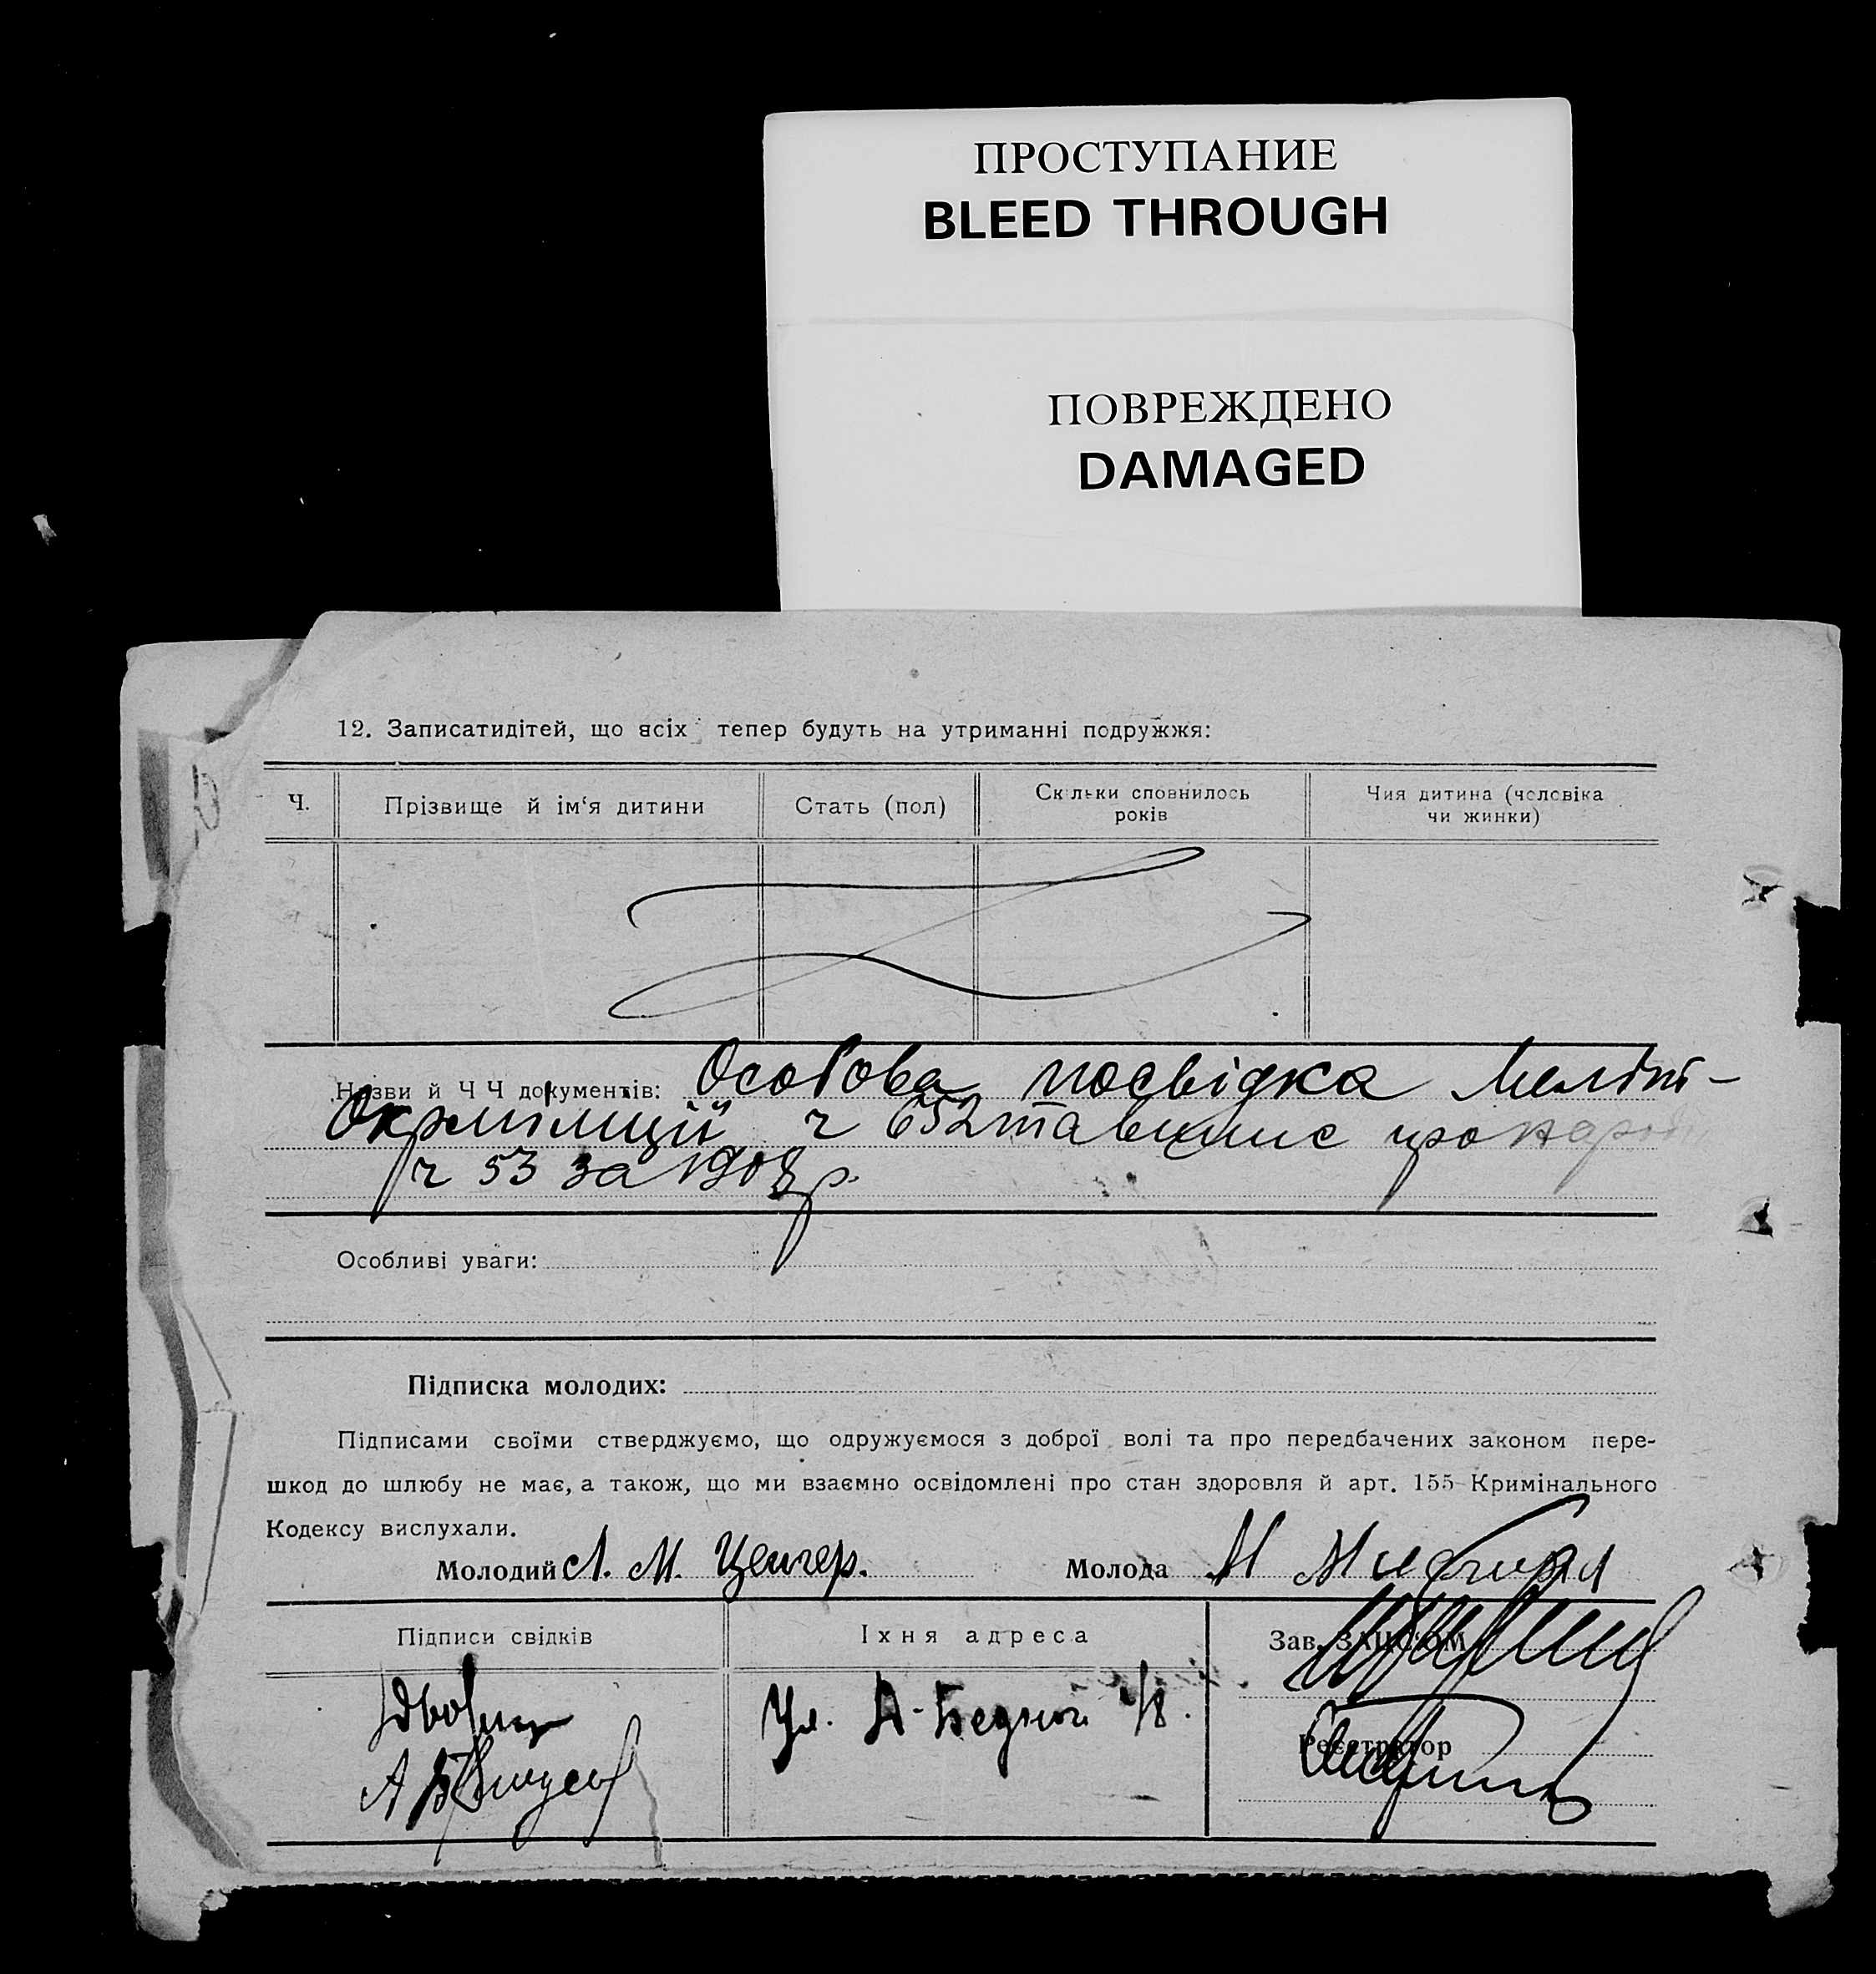 ПРОСТУПАНИЕ
BLEED THROUGH
ПОВРЕЖДЕНО
DAMAGED
12. Записатидітей, що всіх тепер будуть на утриманні подружжя:
Ч.
Прізвище й ім‘я дитини
Стать (пол)
Скільки сповнилось
років
Чия дитина (чоловіка
чи жинки)
Назви й Ч Ч документів: Особова посвідка Меліт-
Окрміліції ч 652 та випис про народ
ч 53 за 1908 р.
Особливі уваги:
Підписка молодих:
Підписами своїми стверджуємо, що одружуємося з доброї волі та про передбачених законом пере-
шкод до шлюбу не має, а також, що ми взаємно освідомлені про стан здоровля й арт. 155 Кримінального
Кодексу вислухали.
Молодий Л. М. Цейгер.
Молода М
Підписи свідків
Їхня адреса
Зав. ЗАГС'ОМ
Ул. Д-Бедной 18.
Реєстратор